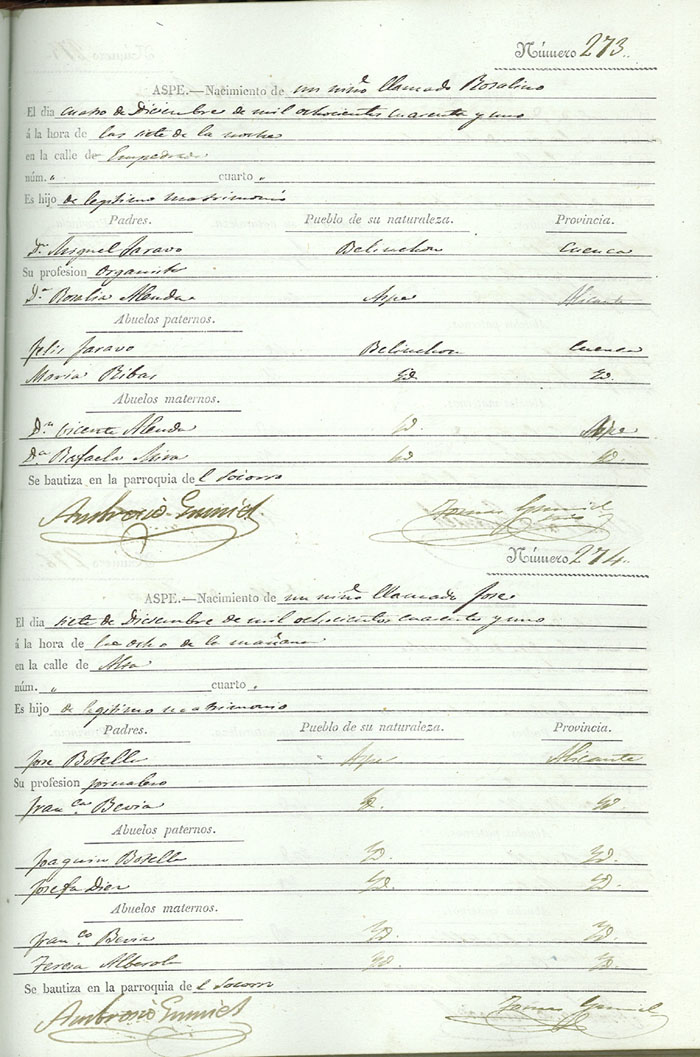 Número 273.
ASPE.—Nacimiento de un niño llamado Rosalino
El dia cuatro de Diciembre de mil ochocientos cuarenta y uno
á la hora de las siete de la noche
en la calle de Empedrada
núm. " cuarto "
Es hijo de legitimo matrimonio
Padres. Pueblo de su naturaleza. Provincia.
Dn. Miguel Jaravo Belinchon Cuenca
Su profesion Organista
Da. Rosalia Almenda Aspe Alicante
Abuelos paternos.
Felis Jaravo Belinchon Cuenca
Maria Ribas Yd. Yd.
Abuelos maternos.
Dn. Vicente Almenda Yd. Aspe
Da. Rafaela Mira Yd. Yd.
Se bautiza en la parroquia del Socorro
Ambrosio Gumiel
Número 274.
ASPE.—Nacimiento de un niño llamado Jose
El dia siete de Diciembre de mil ochocientos cuarenta y uno
á la hora de las ocho de la mañana
en la calle de
núm. " cuarto "
Es hijo de legitimo matrimonio
Padres. Pueblo de su naturaleza. Provincia.
Jose Botella Aspe Alicante
Su profesion jornalero
Franca. Bevia Yd. Yd.
Abuelos paternos.
Joaquin Botella Yd. Yd.
Josefa Diez Yd. Yd.
Abuelos maternos.
Franco. Bevia Yd. Yd.
Teresa Alberola Yd. Yd.
Se bautiza en la parroquia del Socorro
Ambrosio Gumiel